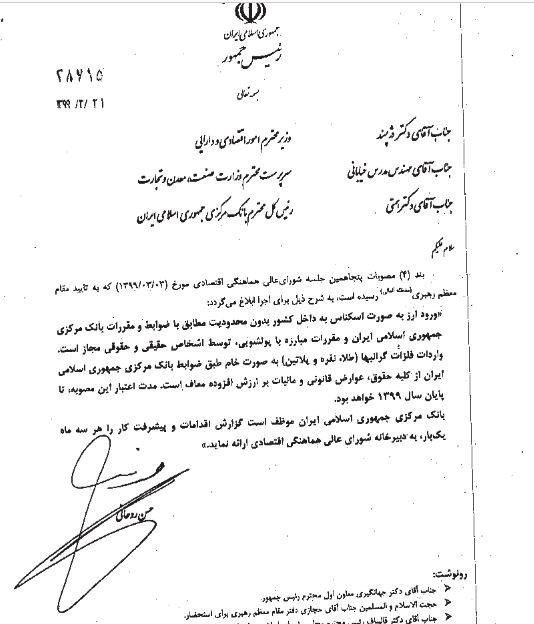 جمهوری اسلامی ایران
رئیس جمهور
بسمه تعالی
۲۸۷۱۵
۱۳۹۹/۳/۲۱
جناب آقای دکتر دژپسند وزیر محترم امور اقتصادی و دارایی
جناب آقای مهندس مدرس خیابانی سرپرست محترم وزارت صنعت، معدن و تجارت
جناب آقای دکتر همتی رئیس کل محترم بانک مرکزی جمهوری اسلامی ایران
سلام علیکم
بند (۴) مصوبات پنجاهمین جلسه شورای‌عالی هماهنگی اقتصادی مورخ (۱۳۹۹/۰۳/۰۳) که به تایید مقام
معظم رهبری رسیده است، به شرح ذیل برای اجرا ابلاغ می‌گردد:
«ورود ارز به صورت اسکناس به داخل کشور بدون محدودیت مطابق با ضوابط و مقررات بانک مرکزی
جمهوری اسلامی ایران و مقررات مبارزه با پولشویی، توسط اشخاص حقیقی و حقوقی مجاز است.
واردات فلزات گرانبها (طلا، نقره و پلاتین) به صورت خام طبق ضوابط بانک مرکزی جمهوری اسلامی
ایران از کلیه حقوق، عوارض قانونی و مالیات بر ارزش افزوده معاف است. مدت اعتبار این مصوبه، تا
پایان سال ۱۳۹۹ خواهد بود.
بانک مرکزی جمهوری اسلامی ایران موظف است گزارش اقدامات و پیشرفت کار را هر سه ماه
یک‌بار، به دبیرخانه شورای عالی هماهنگی اقتصادی ارائه نماید.»
حسن روحانی
رونوشت:
جناب آقای دکتر جهانگیری معاون اول محترم رئیس جمهور.
حجت الاسلام و المسلمین جناب آقای حجازی دفتر مقام معظم رهبری برای استحضار.
جناب آقای دکتر قالیباف رئیس محترم